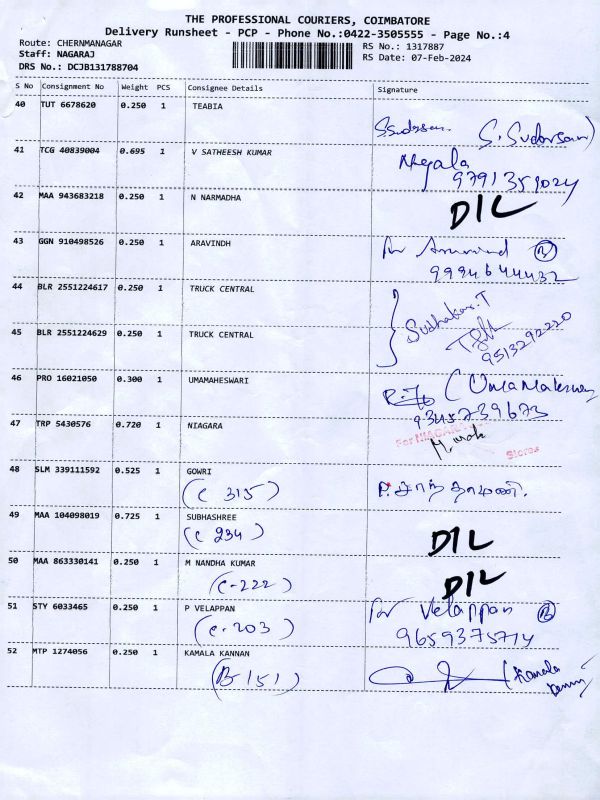 THE PROFESSIONAL COURIERS, COIMBATORE
Delivery Runsheet - PCP - Phone No.:0422-3505555 - Page No.:4
Route: CHERNMANAGAR
RS No.: 1317887
Staff: NAGARAJ
RS Date: 07-Feb-2024
DRS No.: DCJB131788704
S No Consignment No Weight PCS Consignee Details Signature
40 TUT 6678620 0.250 1 TEABIA
S. Sudarsan)
41 TCG 40839004 0.695 1 V SATHEESH KUMAR
Megala
9791359024
42 MAA 943683218 0.250 1 N NARMADHA
D/L
43 GGN 910498526 0.250 1 ARAVINDH
for
9994644432
44 BLR 2551224617 0.250 1 TRUCK CENTRAL
Sudhakar.T
45 BLR 2551224629 0.250 1 TRUCK CENTRAL
9513292220
46 PRO 16021050 0.300 1 UMAMAHESWARI
(Uma Maheswary
9345739673
47 TRP 5430576 0.720 1 NIAGARA
For NIAGARA
Stores
48 SLM 339111592 0.525 1 GOWRI
(C 315)
P. சாந்தாமணி.
49 MAA 104098019 0.725 1 SUBHASHREE
(C 234)
D/L
50 MAA 863330141 0.250 1 M NANDHA KUMAR
(C-222)
D/L
51 STY 6033465 0.250 1 P VELAPPAN
(C-203)
for Velappan
9659375714
52 MTP 1274056 0.250 1 KAMALA KANNAN
(B-151)
(Kamala